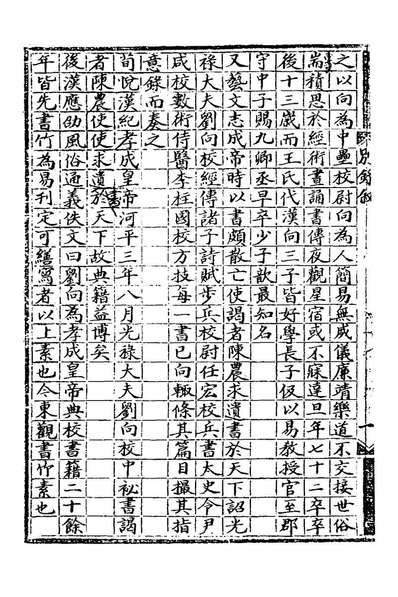 別錄敘
一
之以向為中壘校尉向為人簡易無威儀廉靖樂道不交接世俗
耑積思於經術晝誦書傳夜觀星宿或不寐達旦年七十二卒卒
後十三歲而王氏代漢向三子皆好學長子伋以易教授官至郡
守中子賜九卿丞早卒少子歆最知名
又藝文志成帝時以書頗散亡使謁者陳農求遺書於天下詔光
祿大夫劉向校經傳諸子詩賦步兵校尉任宏校兵書太史令尹
咸校數術侍醫李柱國校方技每一書已向輒條其篇目撮其指
意錄而奏之
荀悅漢紀孝成皇帝河平三年八月光祿大夫劉向校中祕書謁
者陳農使使求遺書於天下故典籍益博矣
後漢應劭風俗通義佚文曰劉向為孝成皇帝典校書籍二十餘
年皆先書竹為易刊定可繕寫者以上素也今東觀書竹素也